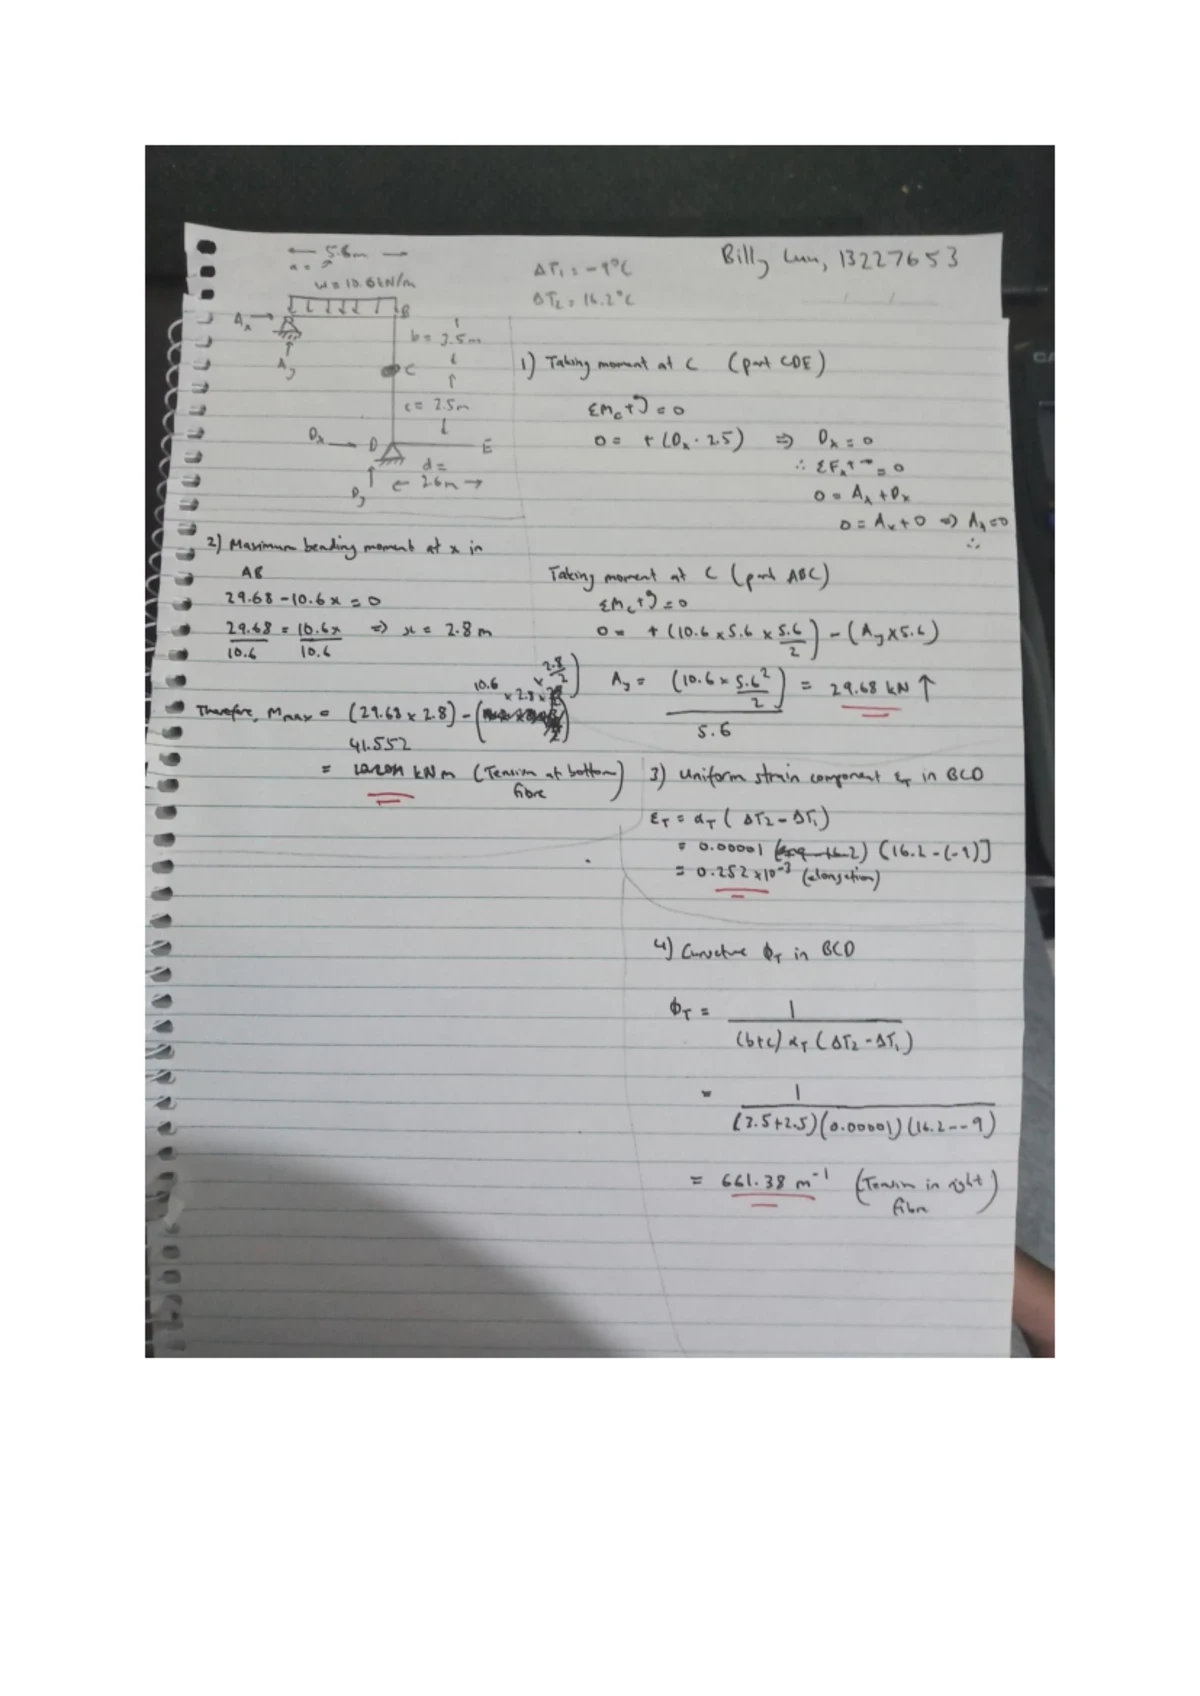 ← 5.6m →
a =
w = 10.6kN/m
ΔT₁ = -9°C
ΔT₂ = 16.2°C
Billy Luu, 13227653
Aₓ
B
A_y
b = 3.5m
C
c = 2.5m
Dₓ
D
E
d =
← 2.6m →
D_y
1) Taking moment at C (part CDE)
ΣM_c+↺ = 0
0 = + (Dₓ · 2.5) ⇒ Dₓ = 0
∴ ΣFₓ+→ = 0
0 = Aₓ + Dₓ
0 = Aₓ + 0 ⇒ Aₓ = 0
∴
Taking moment at C (part ABC)
ΣM_c+↺ = 0
0 = + (10.6 × 5.6 × 5.6/2) - (A_y × 5.6)
A_y = (10.6 × 5.6²/2) / 5.6 = 29.68 kN ↑
2) Maximum bending moment at x in
AB
29.68 - 10.6x = 0
29.68/10.6 = 10.6x/10.6 ⇒ x = 2.8 m
Therefore, Mmax = (29.68 × 2.8) - (10.6 × 2.8 × 2.8/2)
41.552
= kNm (Tension at bottom fibre)
3) Uniform strain component ε_T in BCD
ε_T = α_T ( ΔT₂ - ΔT₁)
= 0.00001 [16.2 - (-9)]
= 0.252 × 10⁻³ (elongation)
4) Curvature ϕ_T in BCD
ϕ_T = 1 / (b+c) α_T (ΔT₂ - ΔT₁)
= 1 / (3.5+2.5)(0.00001)(16.2--9)
= 661.38 m⁻¹ (Tension in right fibre)